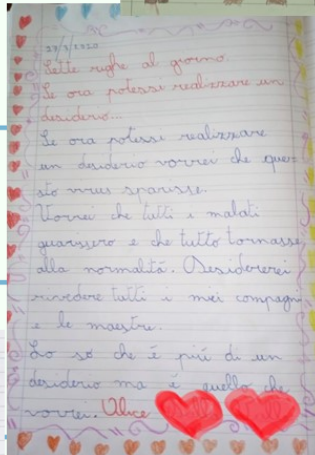 27/3/2020
Sette righe al giorno.
Se ora potessi realizzare un
desiderio...
Se ora potessi realizzare
un desiderio vorrei che que-
sto virus sparisse.
Vorrei che tutti i malati
guarissero e che tutto tornasse
alla normalità. Desidererei
rivedere tutti i miei compagni
e le maestre.
Lo sò che é piú di un
desiderio ma é quello che
vorrei. Alice